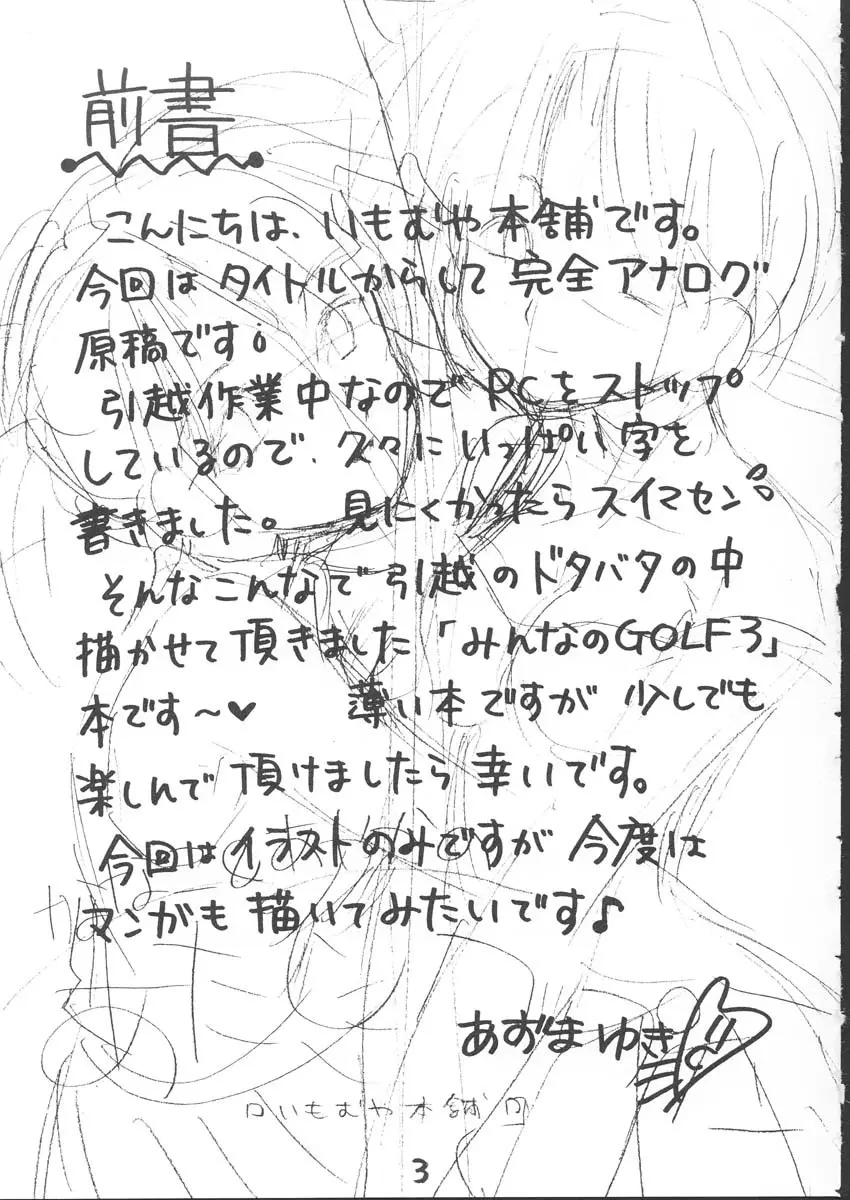 前書
こんにちは、いもむや本舗です。
今回はタイトルからして完全アナログ
原稿です。
引越作業中なのでPCをストップ
しているので、久々にいっぱい字を
書きました。 見にくかったらスイマセン
そんなこんなで引越のドタバタの中
描かせて頂きました「みんなのGOLF3」
本です〜♥ 薄い本ですが少しでも
楽しんで頂けましたら幸いです。
今回はイラストのみですが今度は
マンガも描いてみたいです♪
あずまゆき
いもむや本舗
3